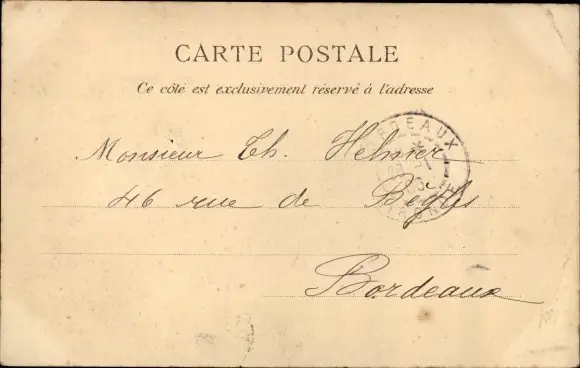 CARTE POSTALE
Ce côté est exclusivement réservé à l'adresse
Monsieur Th. Helmer
46 rue de Bègles
Bordeaux
BORDEAUX
GIRONDE